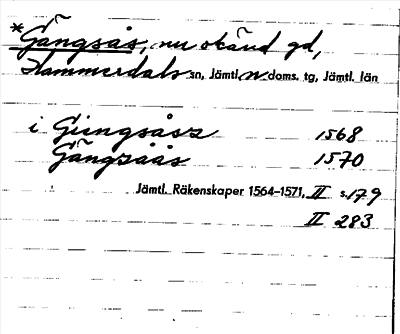 *Gångsås, nu okänd gd,
Hammerdals sn, Jämtl. n. doms. tg, Jämtl. län
i Giengsåsz 1568
Gångzåås 1570
Jämtl. Räkenskaper 1564–1571, II s. 179
II 283